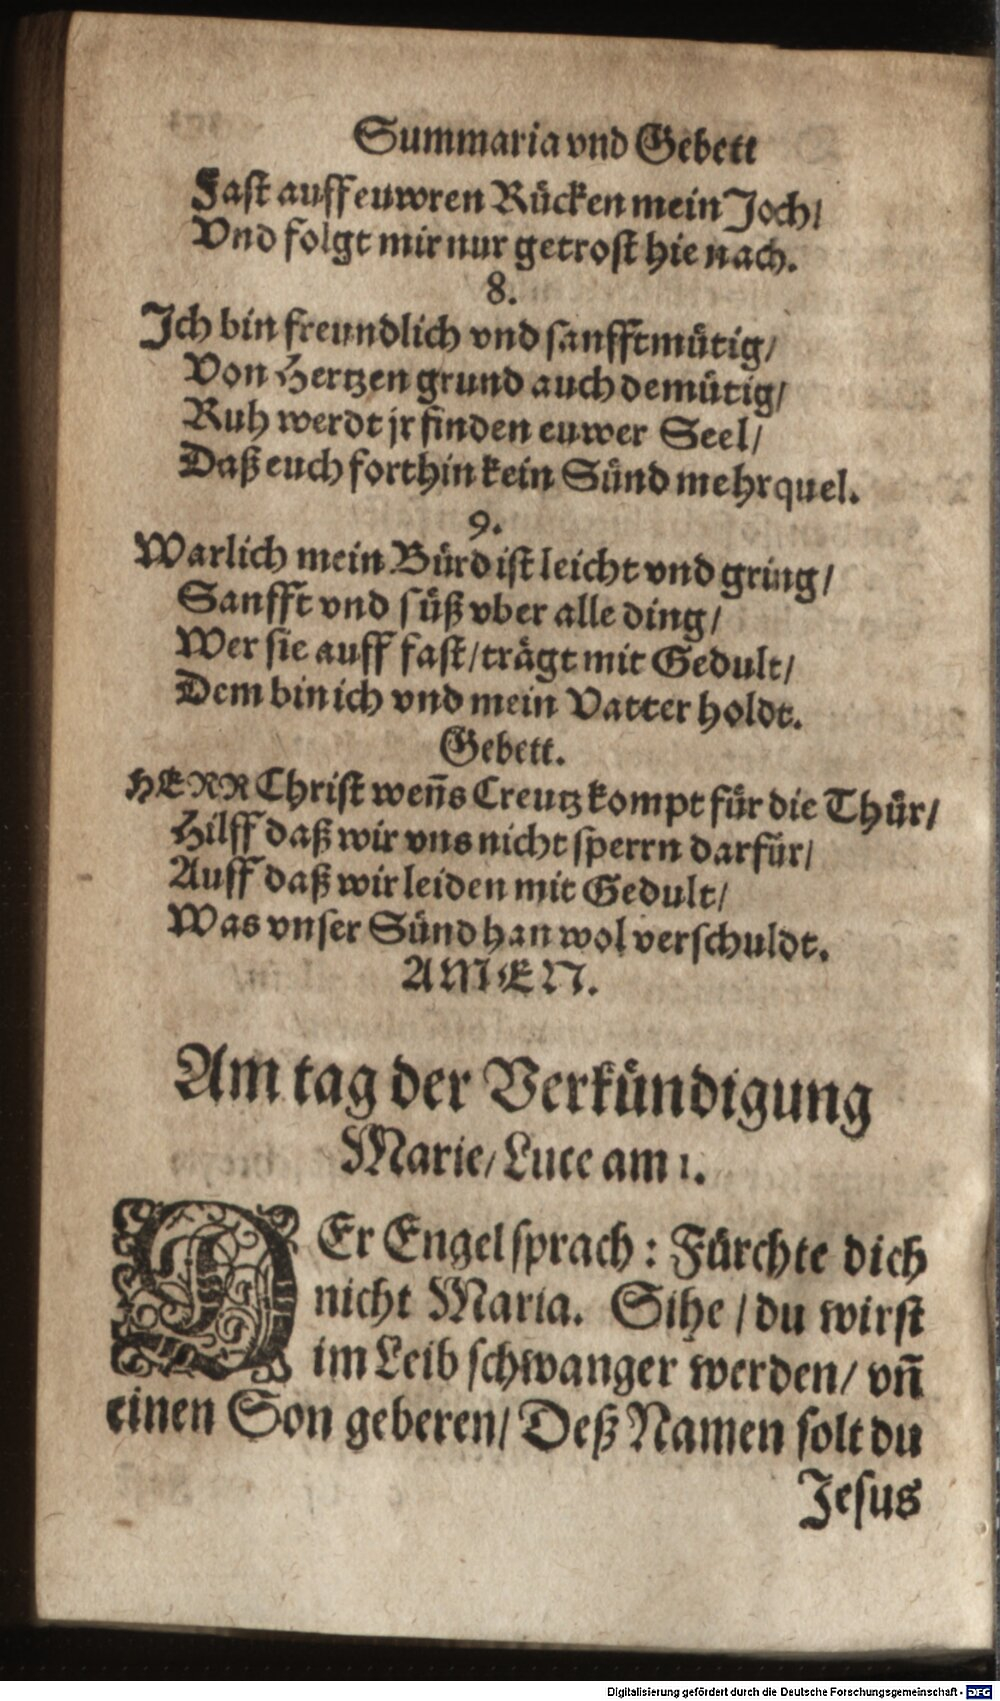 Summaria vnd Gebett
Fast auff euwren Rücken mein Joch/
Vnd folgt mir nur getrost hie nach.
8.
Jch bin freundlich vnd sanfftmütig/
Von Hertzen grund auch demütig/
Ruh werdt jr finden euwer Seel/
Daß euch forthin kein Sünd mehr quel.
9.
Warlich mein Bürd ist leicht vnd gring/
Sanfft vnd süß vber alle ding/
Wer sie auff fast/ trägt mit Gedult/
Dem bin ich vnd mein Vatter holdt.
Gebett.
HERR Christ weñs Creutz kompt für die Thür/
Hilff daß wir vns nicht sperrn darfür/
Auff daß wir leiden mit Gedult/
Was vnser Sünd han wol verschuldt.
AMEN.
Am tag der Verkündigung
Marie/ Luce am 1.
DEr Engel sprach: Fürchte dich
nicht Maria. Sihe / du wirst
im Leib schwanger werden/ vñ
einen Son geberen/ Deß Namen solt du
Jesus
Digitalisierung gefördert durch die Deutsche Forschungsgemeinschaft - DFG